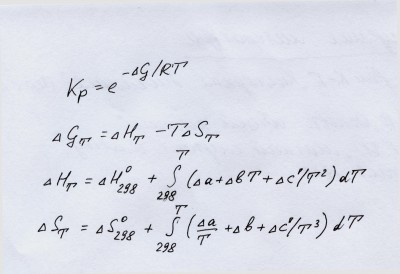 Kp = e^(-ΔG/RT)
ΔG_T = ΔH_T - TΔS_T
ΔH_T = ΔH⁰_298 + ∫_298^T (Δa + ΔbT + Δc'/T²) dT
ΔS_T = ΔS⁰_298 + ∫_298^T (Δa/T + Δb + Δc'/T³) dT